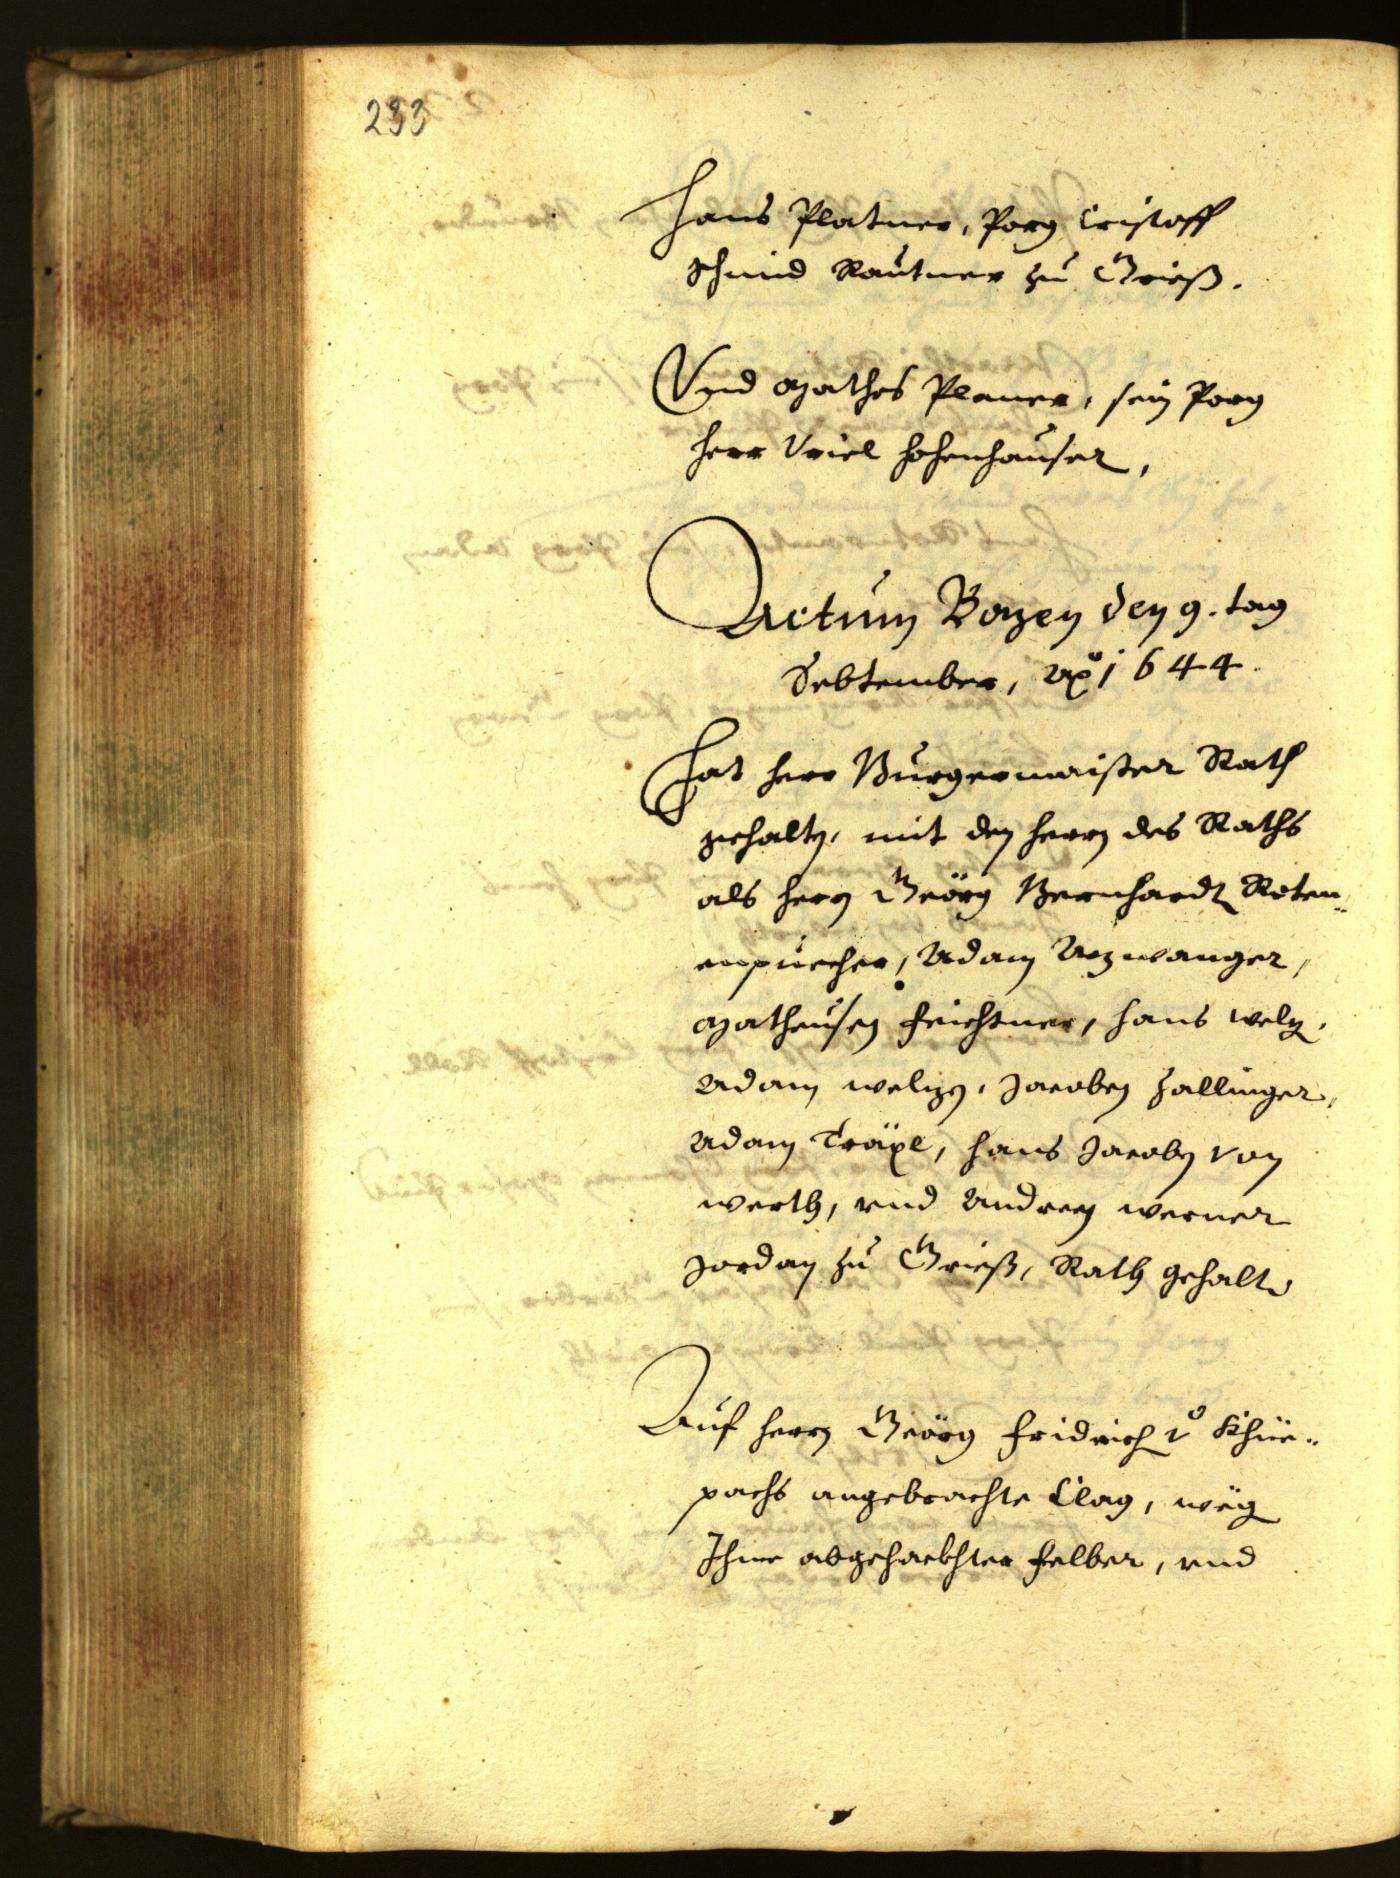 233
Hans Platner, Porg Cristoff
Schmid Rautner zu Grieß.
Vnd Mathes Planer, sein Porg
herr Vriel Hohenhauser,
Actum Bozen den 9. tag
Sebtember, Aõ 1644.
Hat herr Burgermaister Rath
gehalten, mit den herrn des Raths
als herrn Geörg Bernhardt Roten-
enpuecher, Adam Azwanger,
Matheusen Feichtner, Hans Welz,
Adam Welzen, Jacoben Zallinger,
Adam Träxl, Hans Jacoben von
Werth, vnd Andreen Werner
Jordan zu Grieß, Rath gehalten
Auf herrn Geörg Fridrich v Khüe-
pachs angebrachte Clag, weg
Ihme abgehackhter Felber, vnd